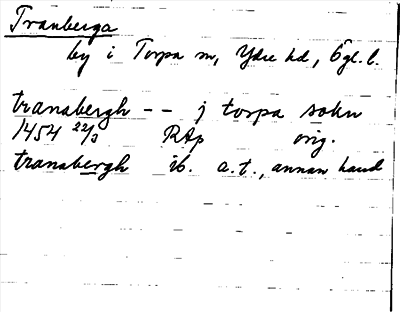 Tranberga
by i Torpa sn, Ydre hd, Ögl. l.
transbergh -- j torpa sokn
1454 22/3 RAp orig.
transbergh ib. a.t., annan hand